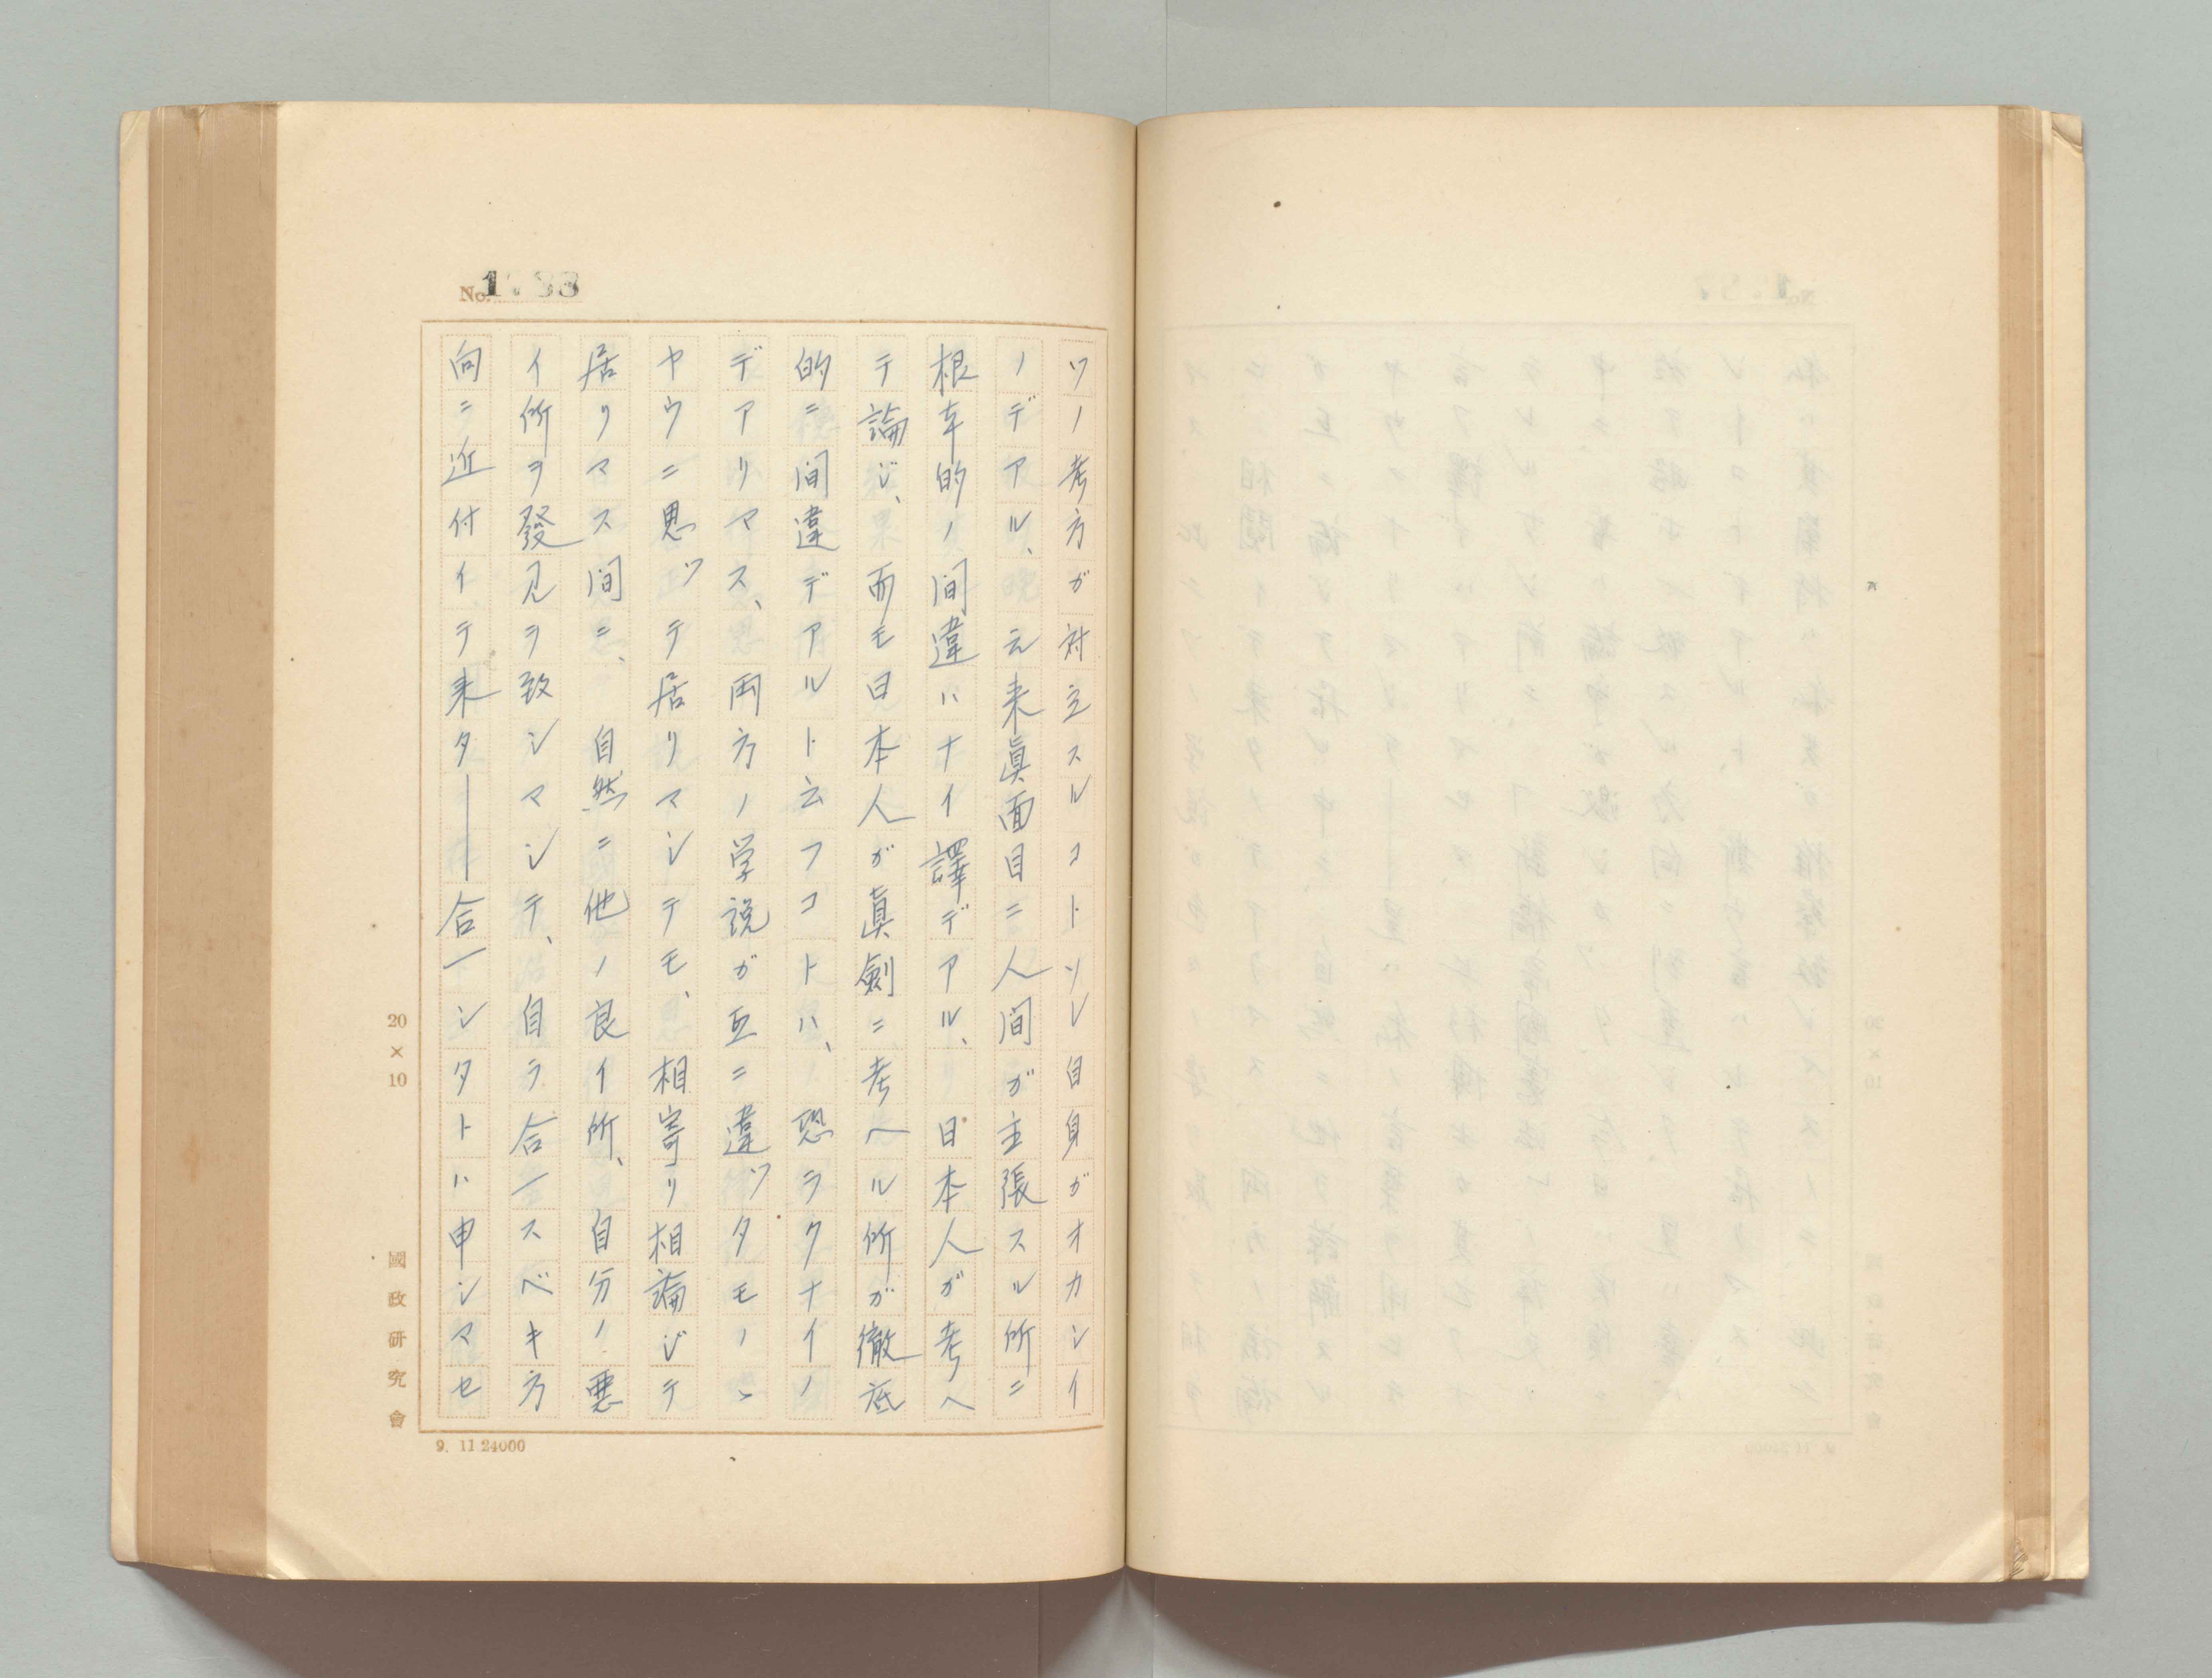 No. 1733
ツノ考方ガ対立スルコトソレ自身ガオカシイ
ノデアル、元来眞面目ニ人間ガ主張スル所ニ
根本的ノ間違ハナイ譯デアル、日本人ガ考ヘ
テ論ジ、而モ日本人ガ眞劍ニ考ヘル所ガ徹底
的ニ間違デアルト云フコトハ、恐ラクナイノ
デアリマス、両方ノ学説ガ互ニ違ツタモノヽ
ヤウニ思ツテ居リマシテモ、相寄リ相論ジテ
居リマス間ニ、自然ニ他ノ良イ所、自分ノ悪
イ所ヲ發見ヲ致シマシテ、自ラ合一スベキ方
向ニ近付イテ来タ――合一シタトハ申シマセ
20×10
國政研究會
9. 11 24000